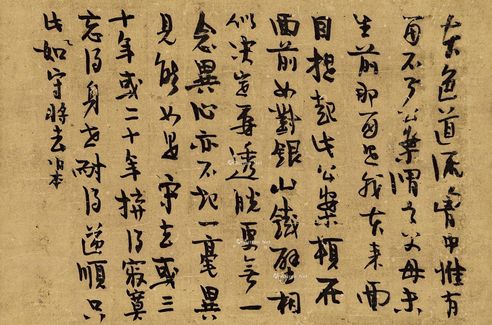 本色道流胷中惟有
箇不了公案謂之父母未
生前那箇是我本来面
目提起此公案頓在
面前如對銀山鐵壁相
似决定要透脱更無一
念異心亦不起一毫異
見能如是守去或三
十年或二十年捱得寂莫
忘得身世耐得逆順只
此如守將去 明本